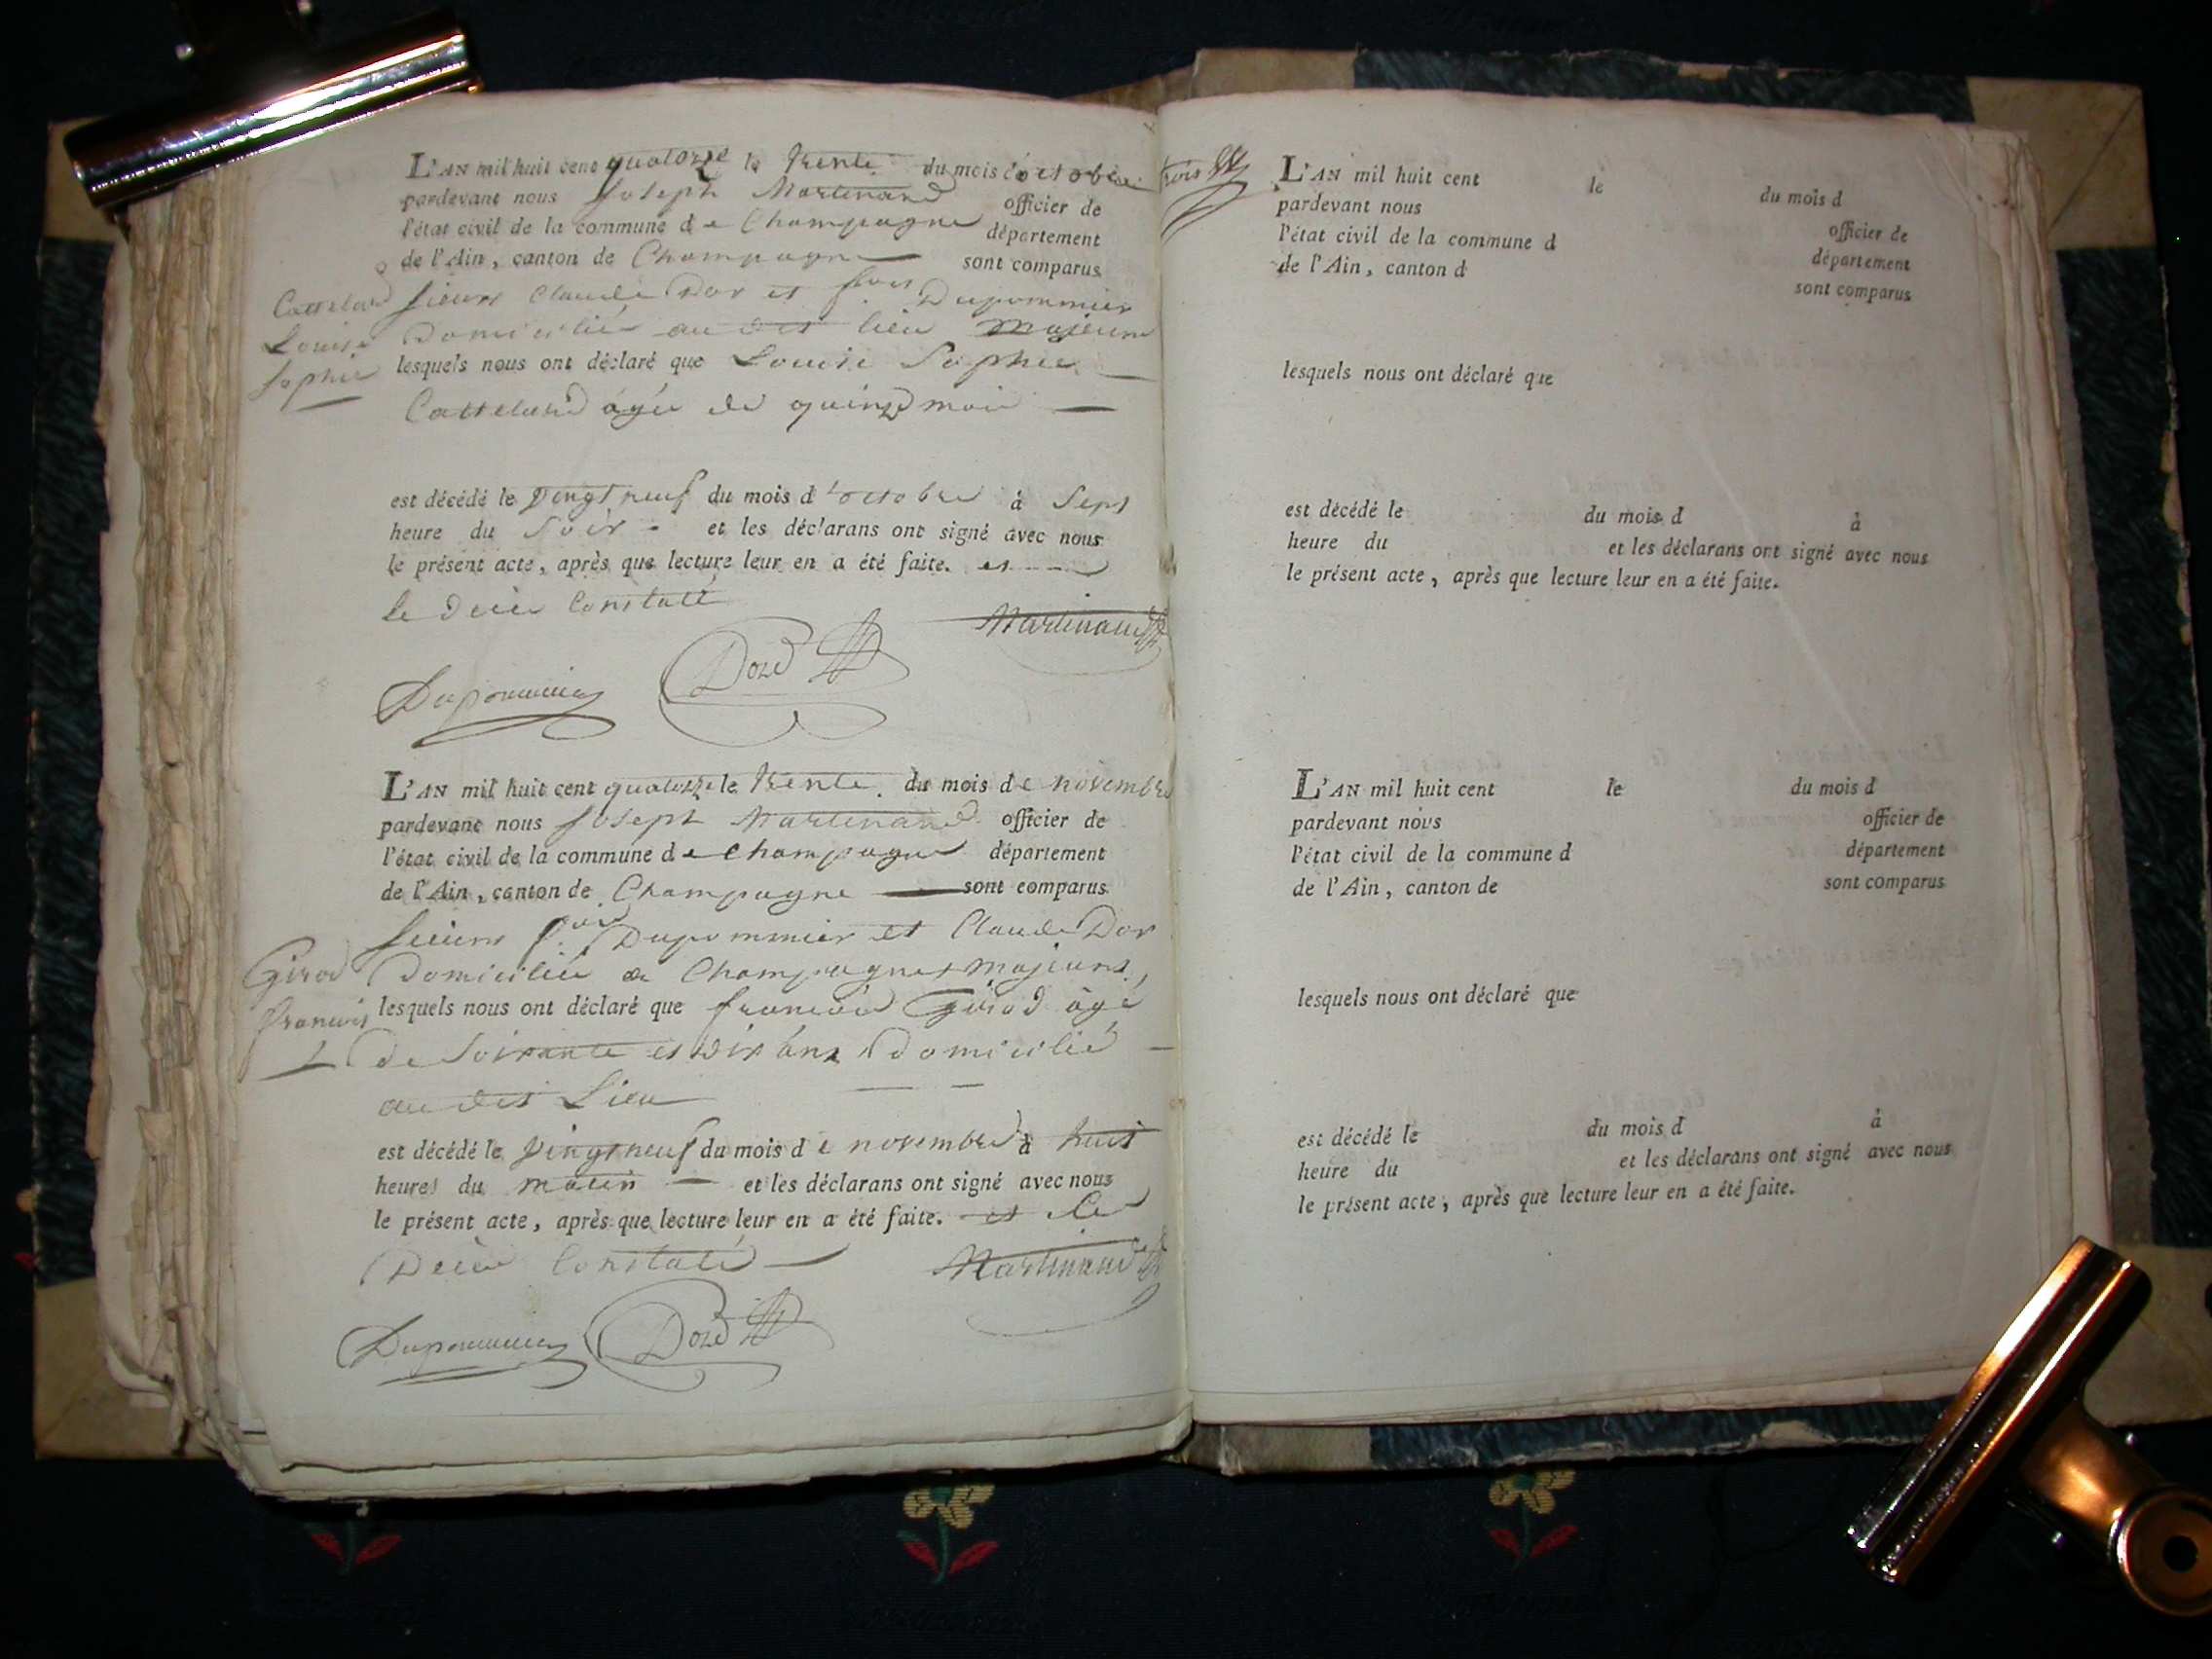 L'AN mil huit cent quatorze le trente du mois d'octobre
pardevant nous Joseph Martinand officier de
l'état civil de la commune de Champagne département
de l'Ain, canton de Champagne sont comparus
Cattelard
Louise
Sophie
sieurs Claude Dor et fçois Dupommier
Domiciliés au dit lieu majeurs
lesquels nous ont déclaré que Louise Sophie
Cattelard âgée de quinze mois
est décédé le vingt neuf du mois d'octobre à Sept
heure du Soir et les déclarans ont signé avec nous
le présent acte, après que lecture leur en a été faite. et
le Décès Constaté
Martinand
Dupommier Dord
L'AN mil huit cent quatorze le trente du mois de novembre
pardevant nous Joseph Martinand officier de
l'état civil de la commune de Champagne département
de l'Ain, canton de Champagne sont comparus
sieurs fçois Dupommier et Claude Dor
Girod
francois
Domiciliés à Champagne majeurs,
lesquels nous ont déclaré que francois Girod âgé
de Soixante et dix ans Domicilié
au dit Lieu
est décédé le vingt neuf du mois de novembre à huit
heures du matin et les déclarans ont signé avec nous
le présent acte, après que lecture leur en a été faite. et le
Décès Constaté
Martinand
Dupommier Dord
trois
L'AN mil huit cent le du mois d
pardevant nous officier de
l'état civil de la commune d département
de l'Ain, canton d sont comparus
lesquels nous ont déclaré que
est décédé le du mois d à
heure du et les déclarans ont signé avec nous
le présent acte, après que lecture leur en a été faite.
L'AN mil huit cent le du mois d
pardevant nous officier de
l'état civil de la commune d département
de l'Ain, canton de sont comparus
lesquels nous ont déclaré que
est décédé le du mois d à
heure du et les déclarans ont signé avec nous
le présent acte, après que lecture leur en a été faite.